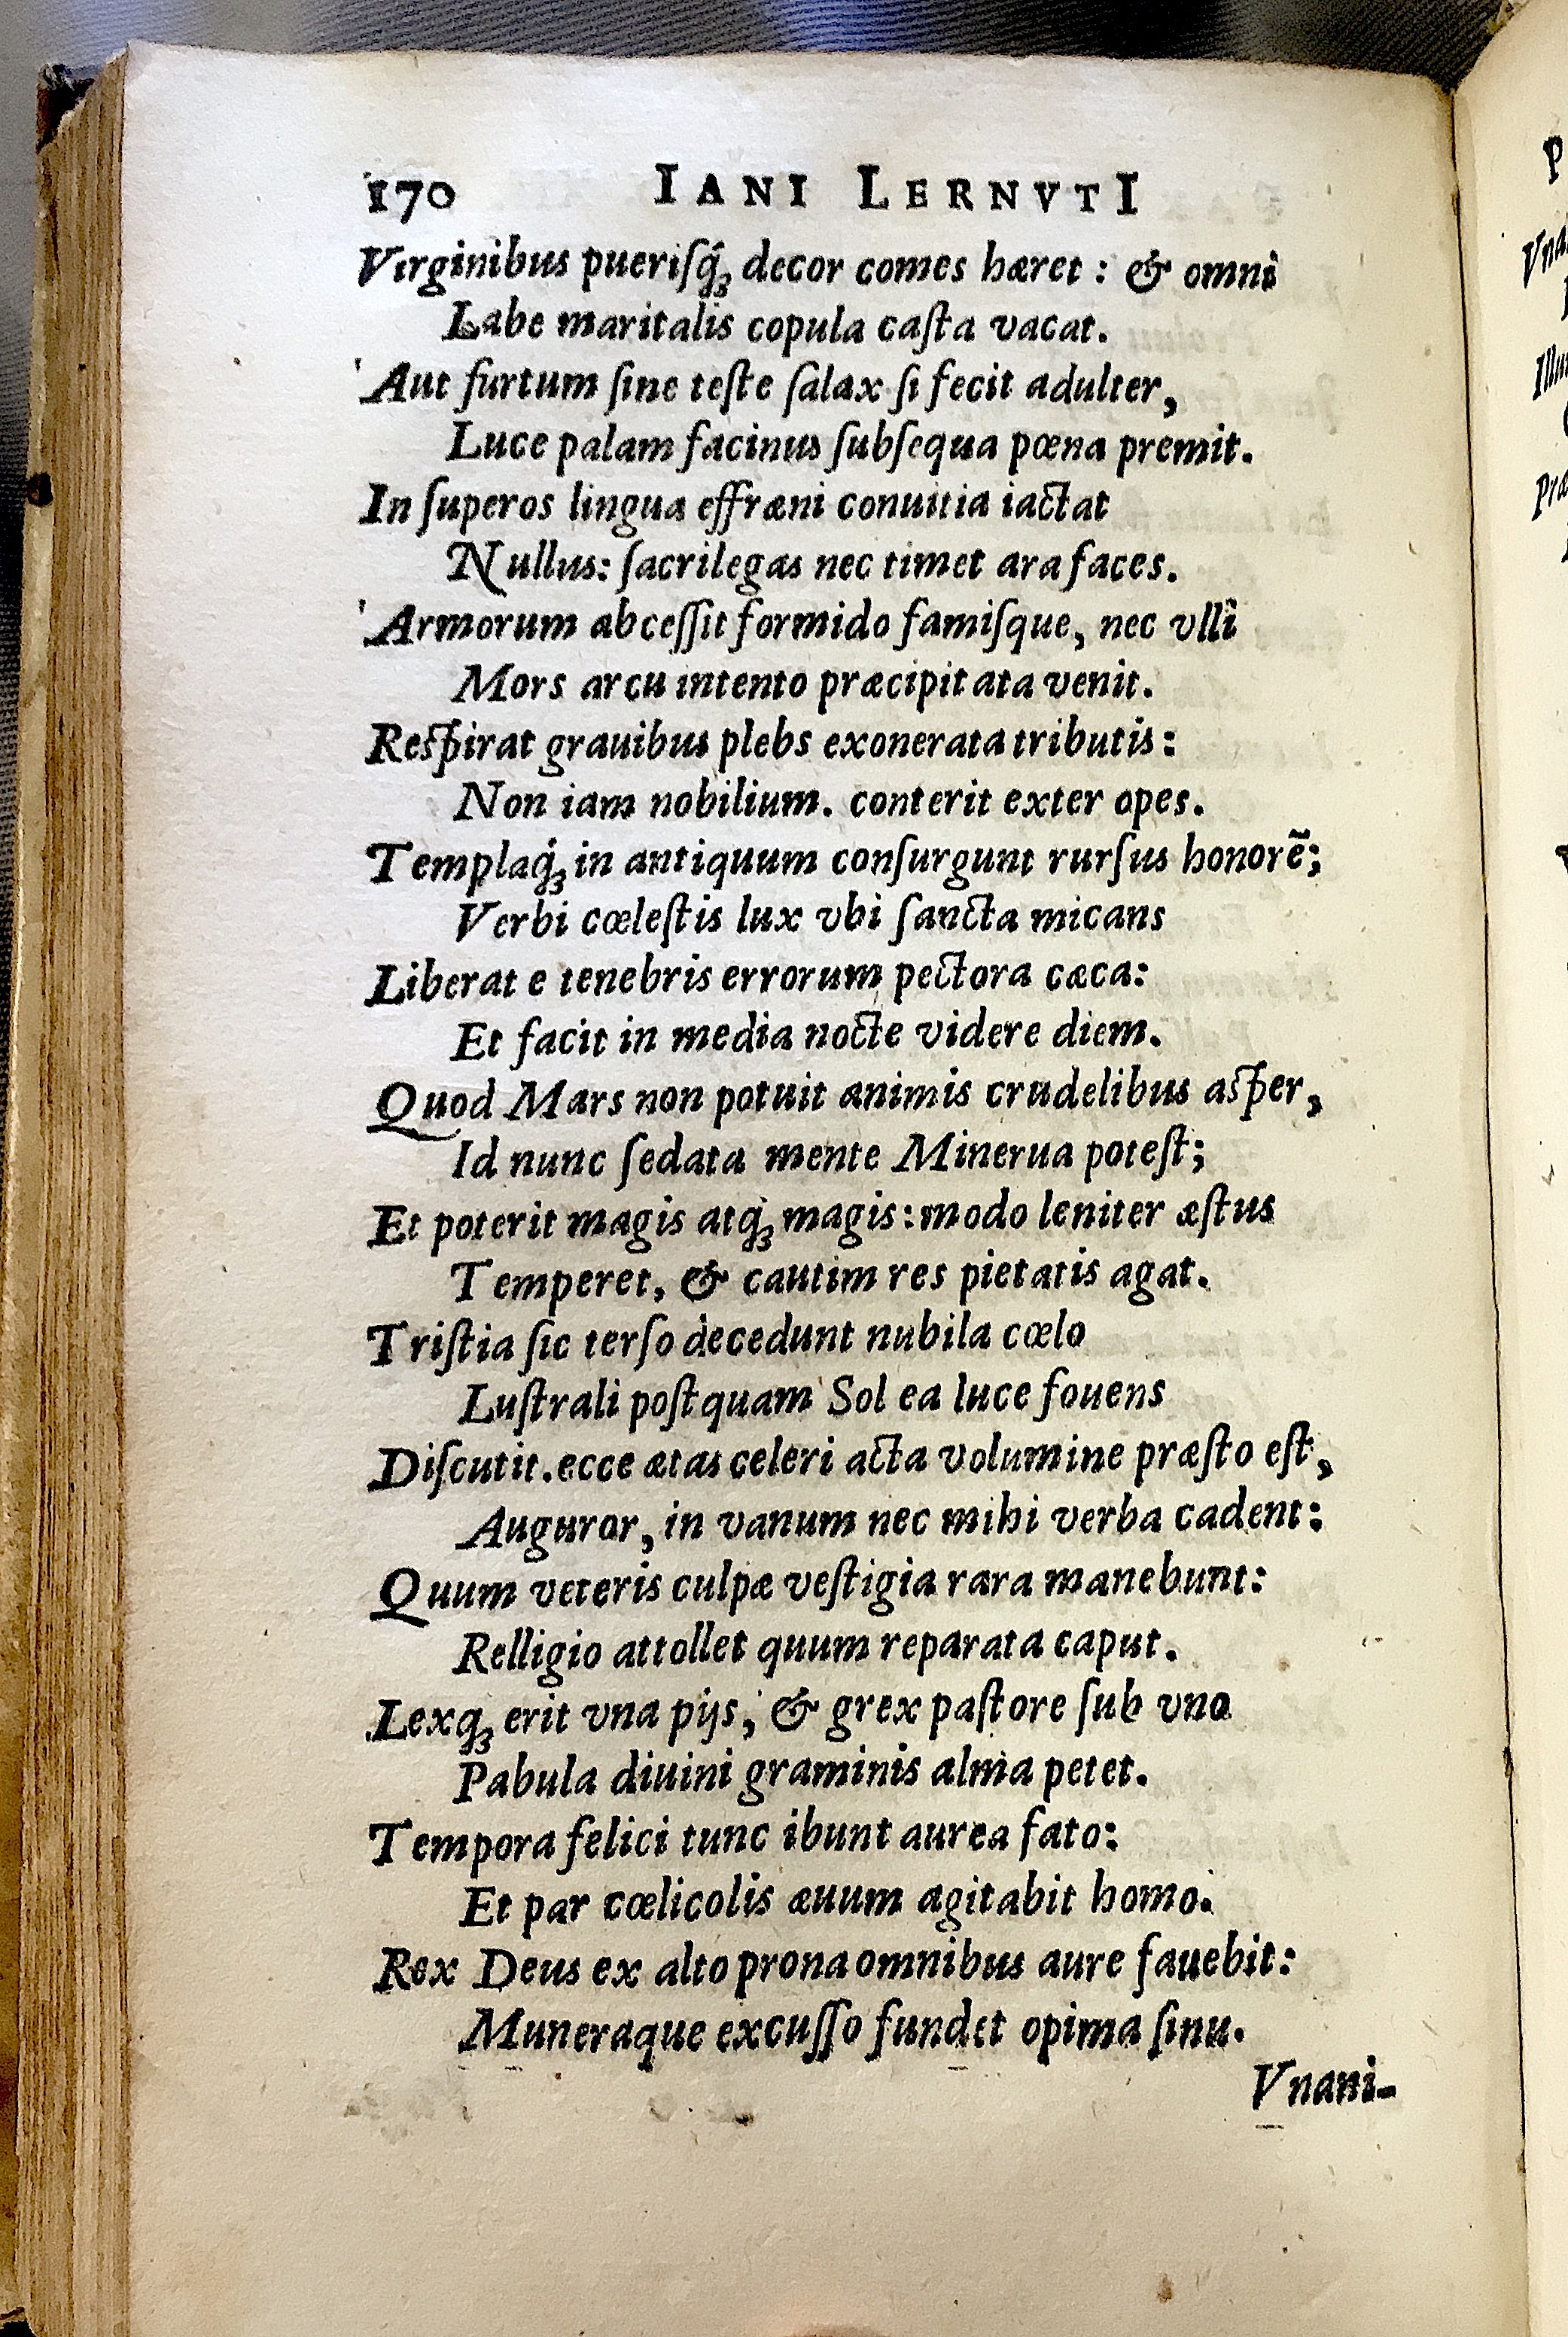 170 IANI LERNVTI
Virginibus pueriſq́ꝫ decor comes hæret : & omni
Labe maritalis copula caſta vacat.
Aut furtum ſine teſte ſalax ſi fecit adulter,
Luce palam facinus ſubſequa pœna premit.
In ſuperos lingua effræni conuitia iactat
Nullus: ſacrilegas nec timet ara faces.
Armorum abceſſit formido famiſque, nec vlli
Mors arcu intento præcipitata venit.
Reſpirat grauibus plebs exonerata tributis:
Non iam nobilium. conterit exter opes.
Templaq́ꝫ in antiquum conſurgunt rurſus honorẽ;
Verbi cœleſtis lux vbi ſancta micans
Liberat e tenebris errorum pectora cæca:
Et facit in media nocte videre diem.
Quod Mars non potuit animis crudelibus aſper,
Id nunc ſedata mente Minerua poteſt;
Et poterit magis atq́ꝫ magis: modo leniter æſtus
Temperet, & cautim res pietatis agat.
Triſtia ſic terſo decedunt nubila cœlo
Luſtrali poſtquam Sol ea luce fouens
Diſcutit. ecce ætas celeri acta volumine præſto eſt,
Auguror, in vanum nec mihi verba cadent:
Quum veteris culpæ veſtigia rara manebunt:
Relligio attollet quum reparata caput.
Lexqꝫ erit vna pijs, & grex paſtore ſub vno
Pabula diuini graminis alma petet.
Tempora felici tunc ibunt aurea fato:
Et par cœlicolis æuum agitabit homo.
Rex Deus ex alto prona omnibus aure fauebit:
Muneraque excuſſo fundet opima ſinu.
Vnani-